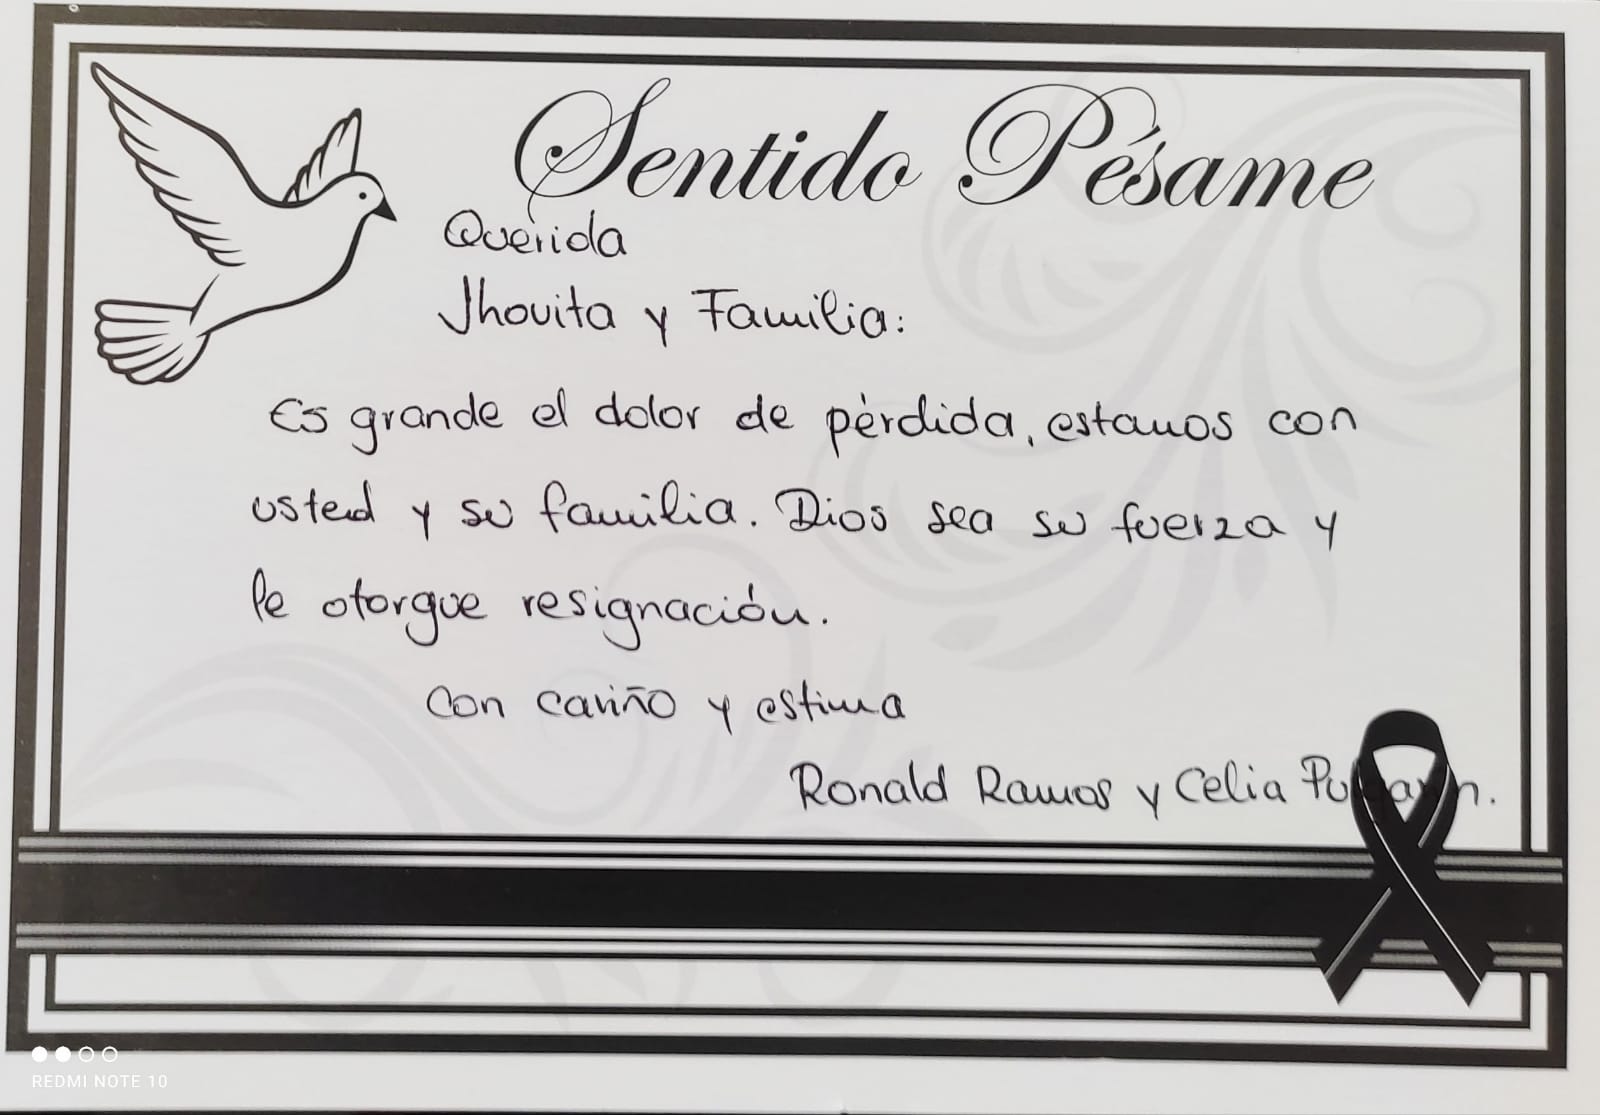 Sentido Pésame
Querida
Jhovita y Familia:
Es grande el dolor de pérdida, estamos con
usted y su familia. Dios sea su fuerza y
le otorgue resignación.
Con cariño y estima
Ronald Ramos y Celia
REDMI NOTE 10